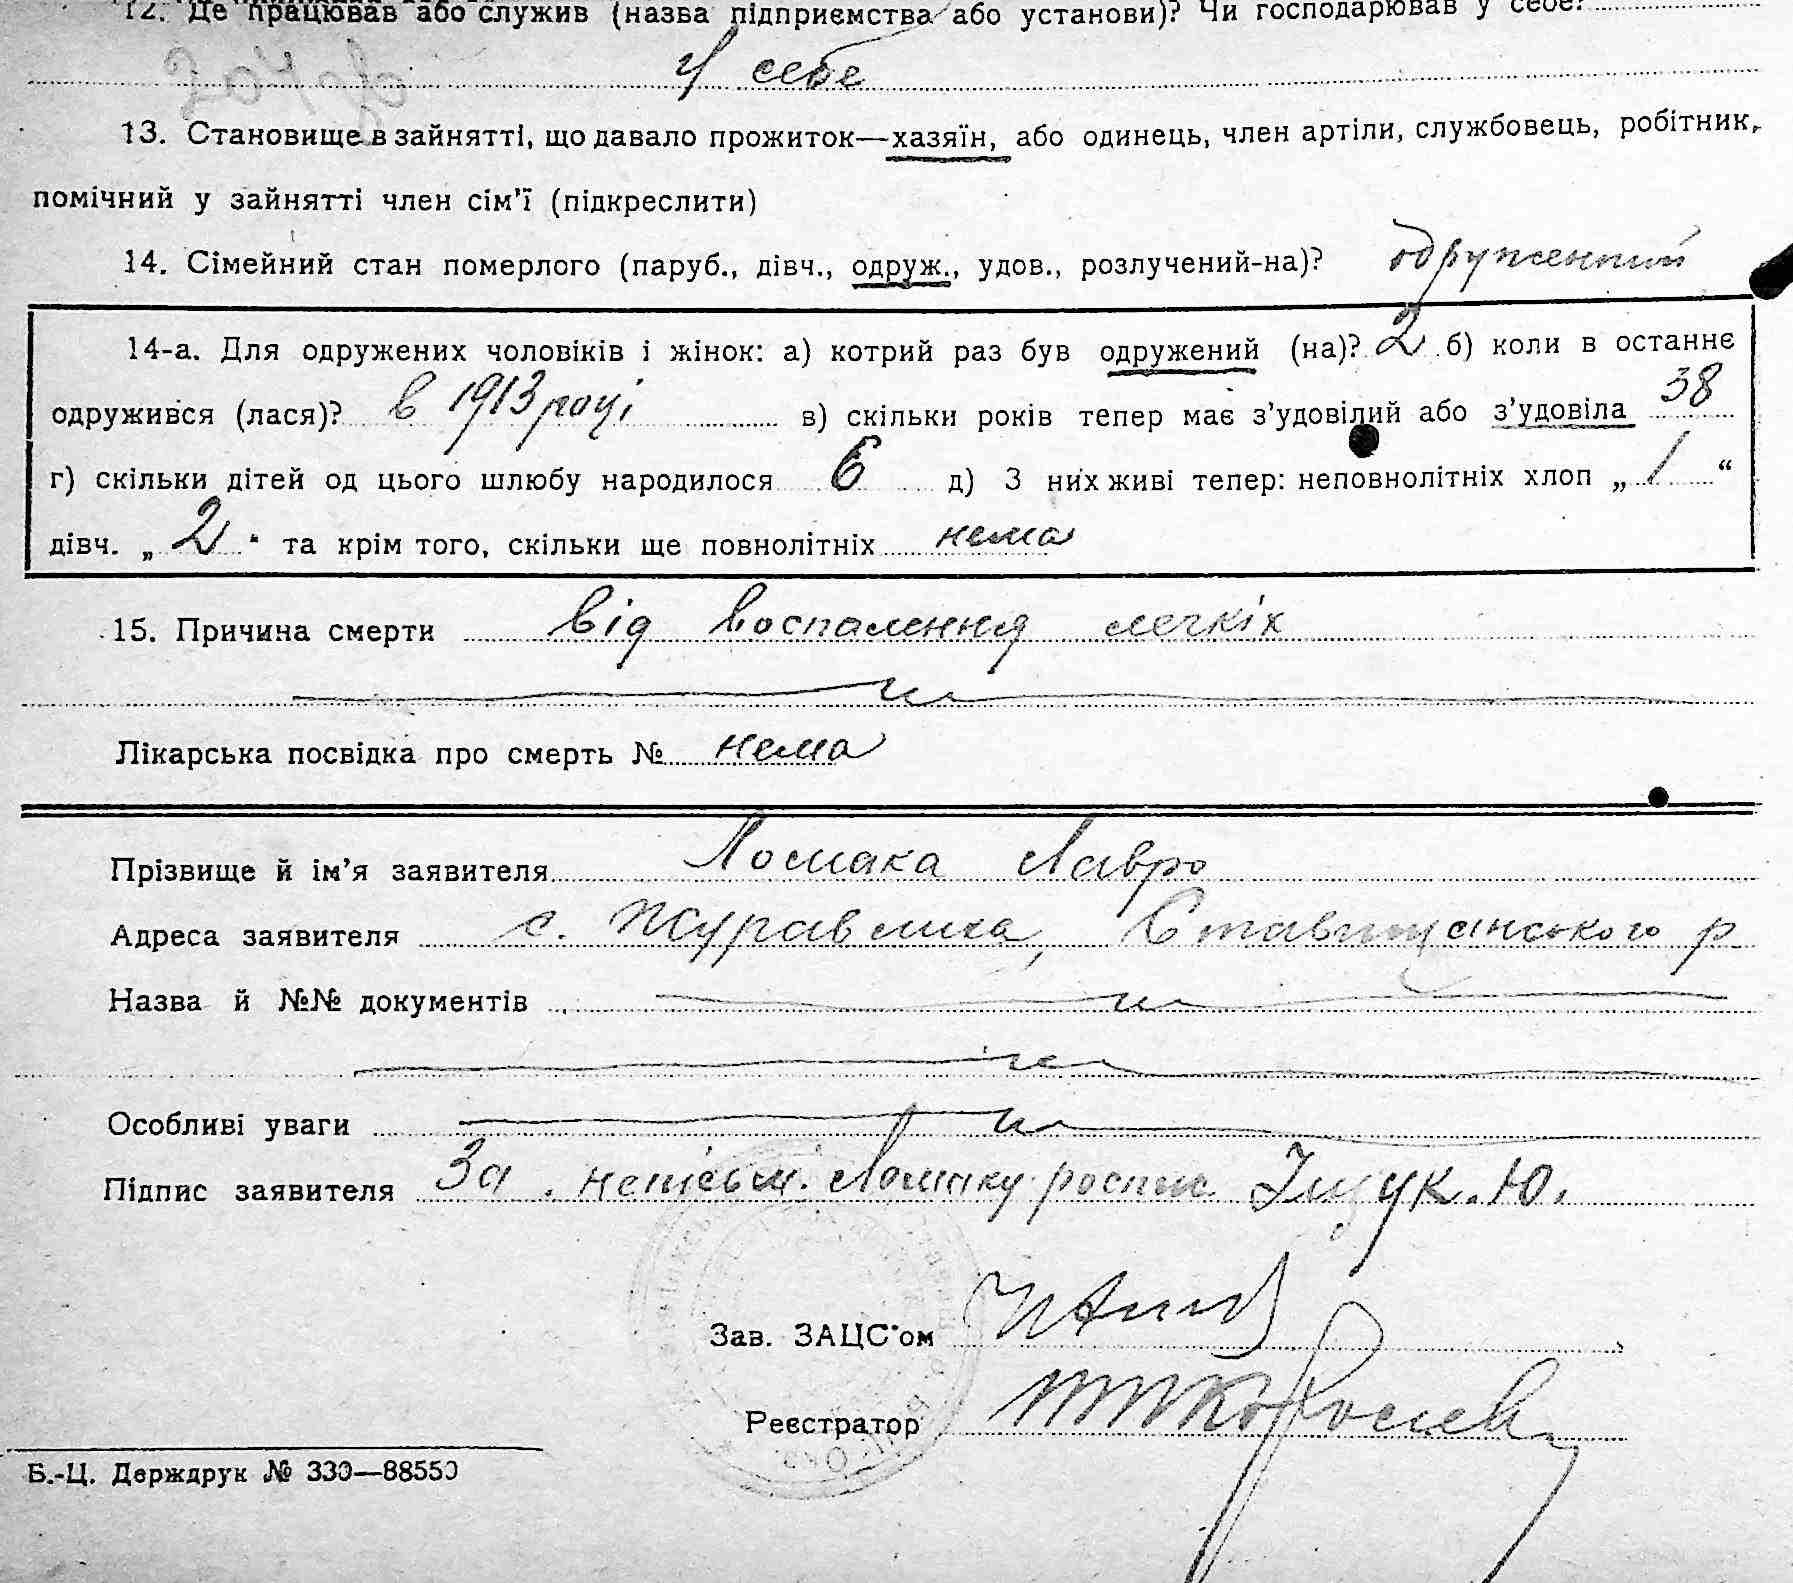 12. Де працював або служив (назва підприємства або установи)? Чи господарював у себе?
У себе
13. Становище в зайнятті, що давало прожиток—хазяїн, або одинець, член артіли, службовець, робітник,
помічний у зайнятті член сім'ї (підкреслити)
14. Сімейний стан померлого (паруб., дівч., одруж., удов., розлучений-на)? одружений
14-а. Для одружених чоловіків і жінок: а) котрий раз був одружений (на)? 2 б) коли в останнє
одружився (лася)? в 1913 році в) скільки років тепер має з'удовілий або з'удовіла 38
г) скільки дітей од цього шлюбу народилося 6 д) З них живі тепер: неповнолітніх хлоп „ 1 “
дівч. „ 2 “ та крім того, скільки ще повнолітніх нема
15. Причина смерти від воспалення легких
Лікарська посвідка про смерть № нема
Прізвище й ім'я заявителя Ломака Лавро
Адреса заявителя с. Журавлиха, Ставищанського р
Назва й №№ документів
Особливі уваги
Підпис заявителя За неписьм. Ломаку роспис. Іщук. Ю.
Зав. ЗАЦС'ом
Реєстратор
Б.-Ц. Держдрук № 330—88550